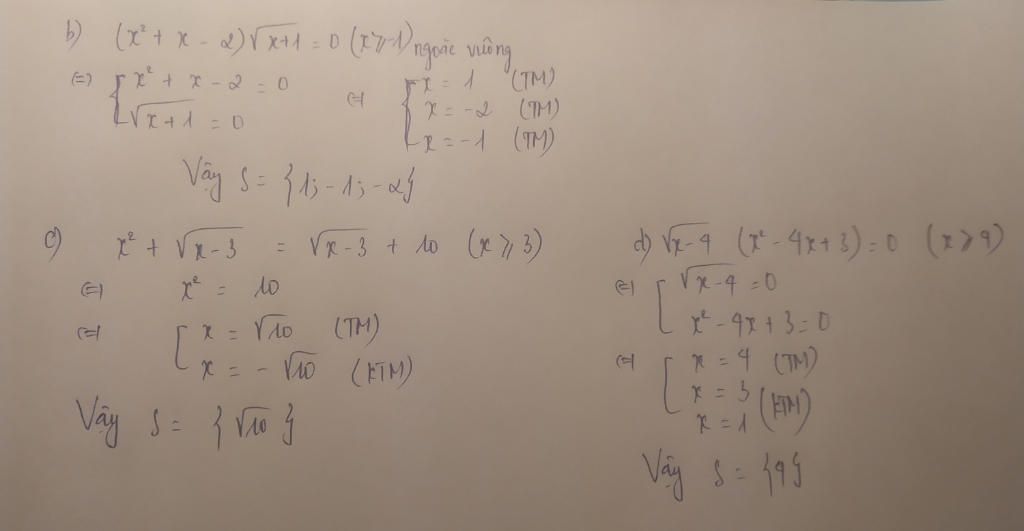 b) (x² + x - 2)√x+1 = 0 (x ≥ -1) ngoặc vuông
(=) { [ x² + x - 2 = 0 (=) { [ x = 1 (TM)
√x+1 = 0 x = -2 (TM)
x = -1 (TM)
Vậy S = {1; -1; -2}
c) x² + √x-3 = √x-3 + 10 (x ≥ 3)
(=) x² = 10
(=) [ x = √10 (TM)
x = -√10 (KTM)
Vậy S = {√10}
d) √x-4 (x² - 4x + 3) = 0 (x ≥ 4)
(=) [ √x-4 = 0
x² - 4x + 3 = 0
(=) [ x = 4 (TM)
x = 3
x = 1 (KTM)
Vậy S = {4}